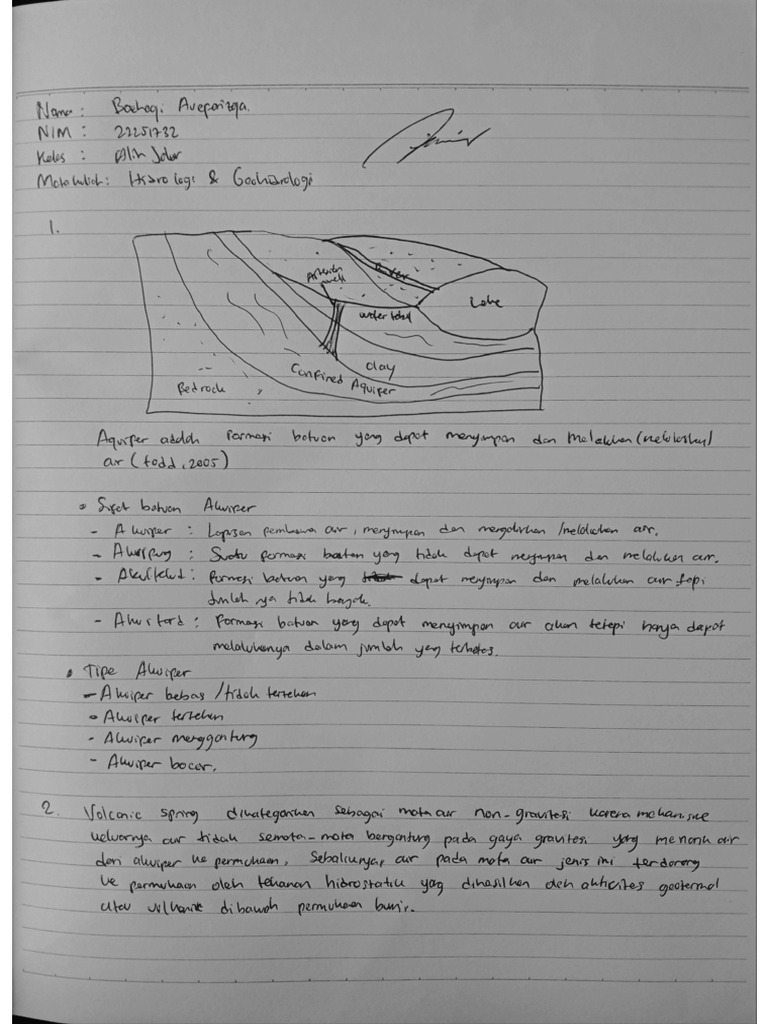 Nama : Baehaqi Aveparizqa.
NIM : 22251732
Kelas : Alih Jalur
Matakuliah : Hidrologi & Geohidrologi
1.
Artesian
well
River
Lake
water tabel
clay
Confined Aquifer
Bedrock
Aquifer adalah Formasi batuan yang dapat menyimpan dan Melalukan (meloloskan)
air (todd, 2005)
• Sifat batuan Akuifer
- Akuifer : Lapisan pembawa air, menyimpan dan mengalirkan / melalukan air.
- Akuifug : Suatu formasi batuan yang tidak dapat menyimpan dan melalukan air.
- Akuiklud : formasi batuan yang dapat menyimpan dan melalukan air tapi
Jumlah nya tidak banyak.
- Akuitard : Formasi batuan yang dapat menyimpan air akan tetapi hanya dapat
melalukannya dalam jumlah yang terbatas.
• Tipe Akuifer
- Akuifer bebas / tidak tertekan
• Akuifer tertekan
- Akuifer menggantung
- Akuifer bocor.
2. Volcanic spring dikategorikan sebagai mata air non-gravitasi karena mekanisme
keluarnya air tidak semata-mata bergantung pada gaya gravitasi yang menarik air
dari akuifer ke permukaan, Sebaliknya, air pada mata air jenis ini terdorong
ke permukaan oleh tekanan hidrostatik yang dihasilkan oleh aktivitas geotermal
atau vulkanik dibawah permukaan bumi.